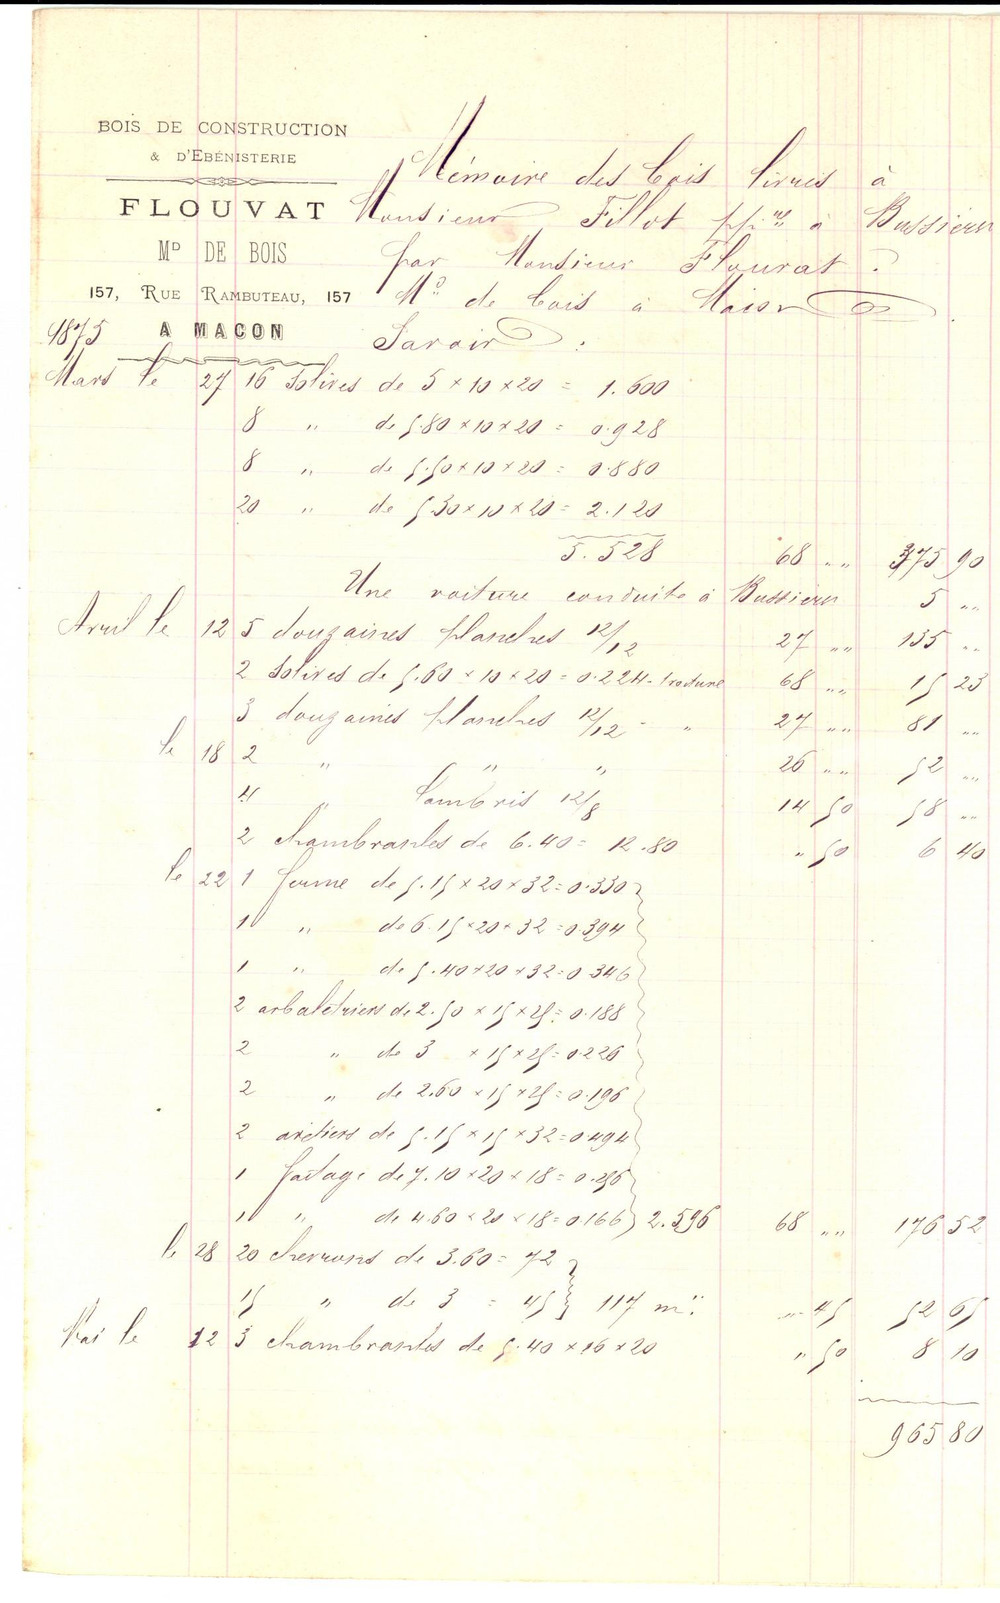 BOIS DE CONSTRUCTION
& D'EBÉNISTERIE
FLOUVAT
MD DE BOIS
157, RUE RAMBUTEAU, 157
A MACON
Mémoire des bois livrés à
Monsieur Fillot à Bussière
par Monsieur Flouvat
Md de bois à Macon
Savoir :
1875
Mars le 27 16 Solives de 5 × 10 × 20 = 1.600
8 " de 5.80 × 10 × 20 = 0.928
8 " de 5.50 × 10 × 20 = 0.880
20 " de 5.30 × 10 × 20 = 2.120
5.528 68 " " 375 90
Une voiture conduite à Bussière 5 " "
Avril le 12 5 douzaines planches 12/12 27 " " 135 " "
2 Solives de 5.60 × 10 × 20 = 0.224 - 68 " " 15 23
3 douzaines planches 12/12 - " 27 " " 81 " "
le 18 2 " " " 26 " " 52 " "
4 " Lambris 12/8 14 50 58 " "
2 chambranles de 6.40 = 12.80 " 50 6 40
le 22 1 ferme de 5.15 × 20 × 32 = 0.330
1 " de 6.15 × 20 × 32 = 0.394
1 " de 5.40 × 20 × 32 = 0.346
2 arbaletriers de 2.50 × 15 × 25 = 0.188
2 " de 3 × 15 × 25 = 0.226
2 " de 2.60 × 15 × 25 = 0.196
2 arêtiers de 5.15 × 15 × 32 = 0.494
1 faitage de 7.10 × 20 × 18 = 0.256
1 " de 4.60 × 20 × 18 = 0.166 } 2.596 68 " " 176 52
le 28 20 chevrons de 3.60 = 72
15 " de 3 = 45 } 117 m " 45 52 65
Mai le 12 3 chambranles de 5.40 × 16 × 20 " 50 8 10
965 80